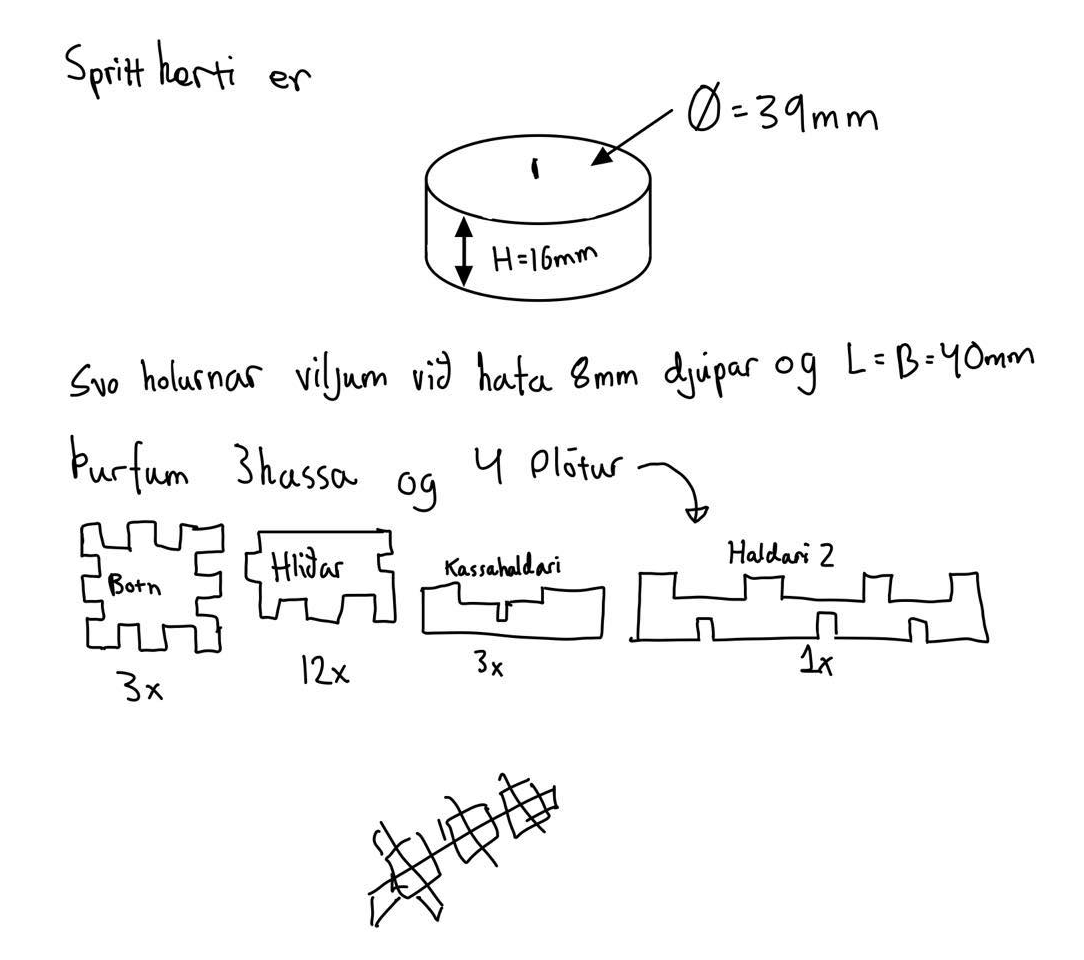 Spritt kerti er
Ø=39mm
H=16mm
Svo holurnar viljum við hafa 8mm djúpar og L=B=40mm
Þurfum 3kassa og 4 Plötur
Botn
Hliðar
Kassahaldari
Haldari 2
3x
12x
3x
1x